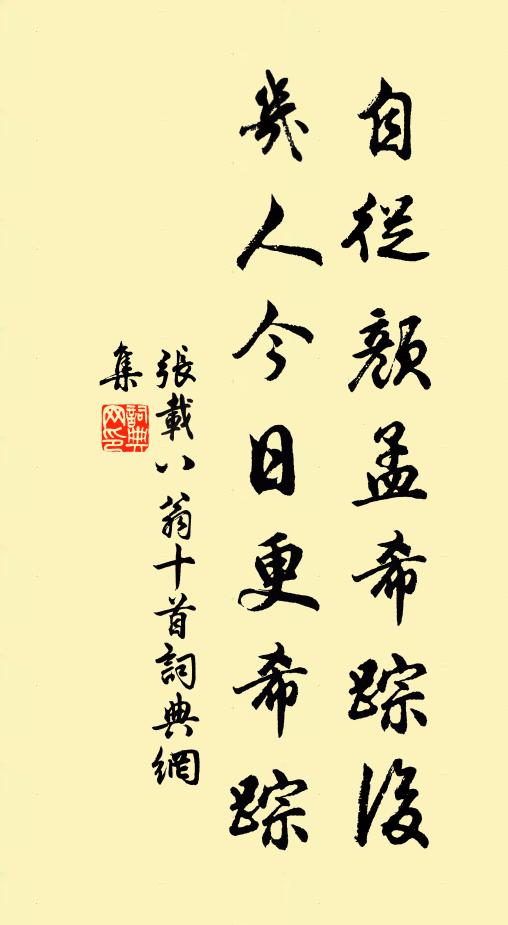 自從顏孟希踪後
幾人今日更希踪
張載八翁十首詞典網
集
詞典網印